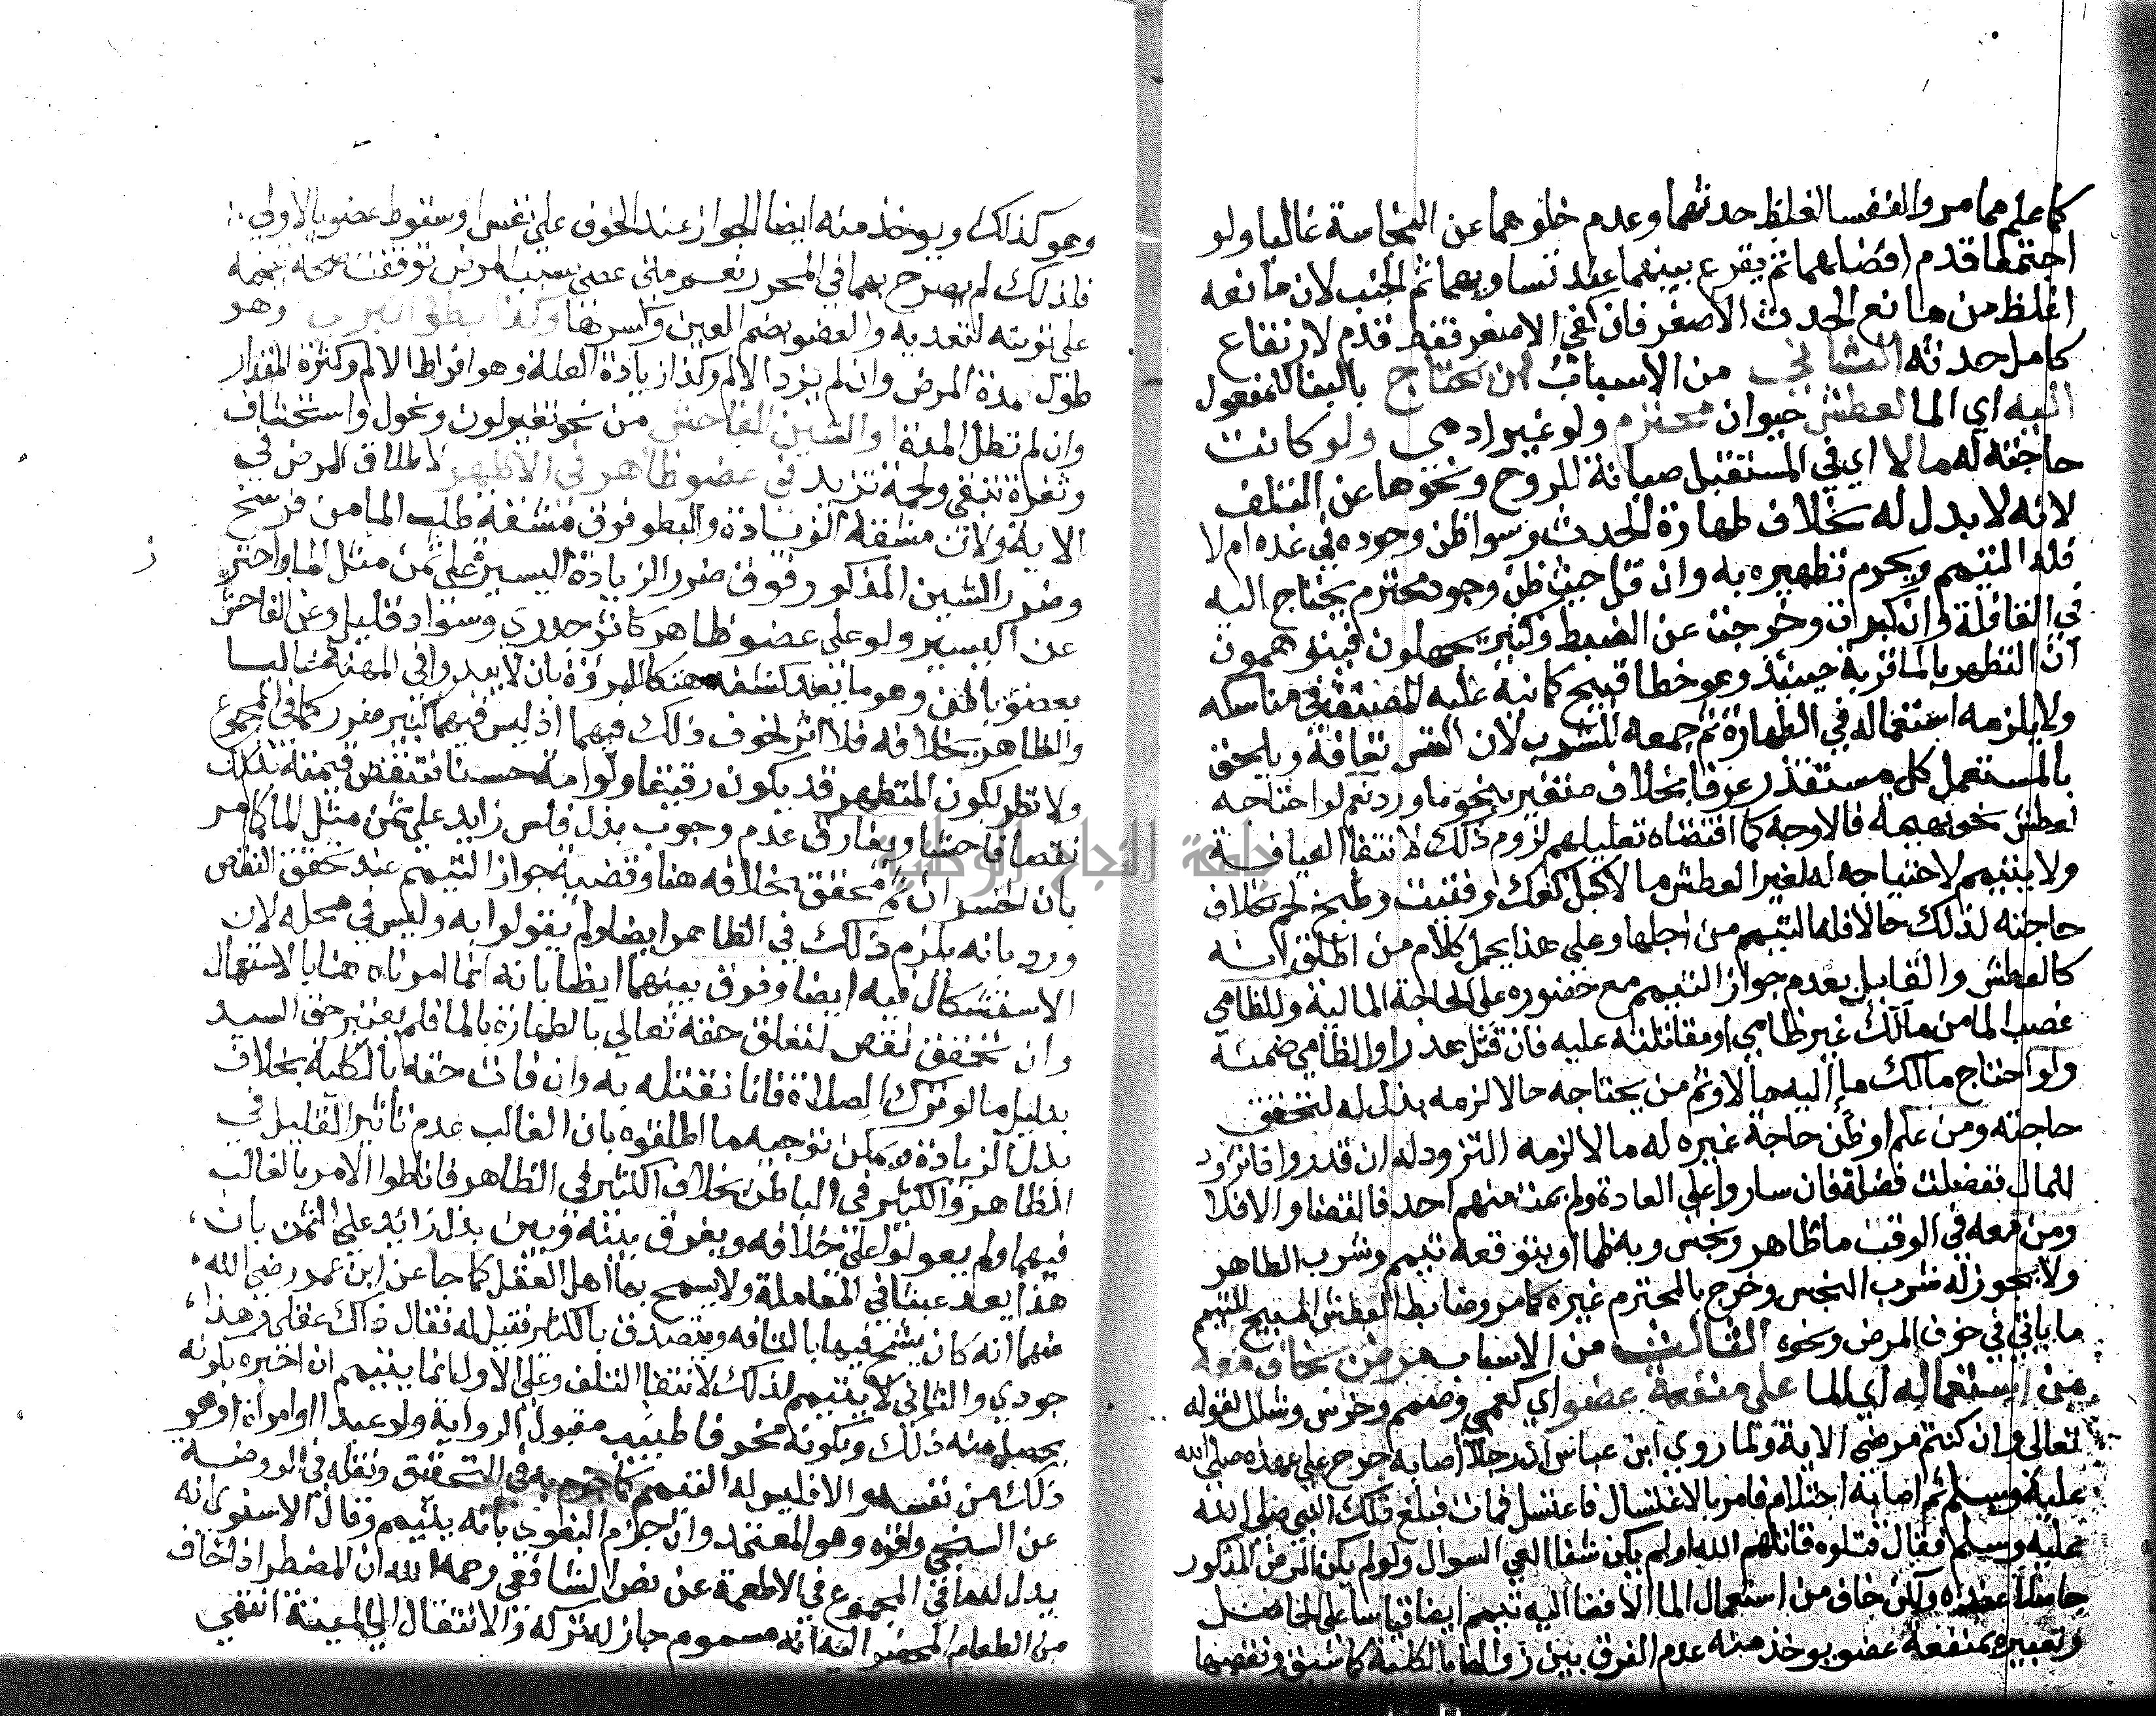 كما علم مما مر والنفسا لغلظ حدثهما وعدم خلوهما عن النجاسة غالبا ولو
اجتمعا قدم افضلهما ثم يقرع بينهما عند تساويهما ثم الجنب لان مانعه
اغلظ من مانع الحدث الاصغر فان كفى الاصغر فقط قدم لارتفاع
كامل حدثه الثاني من الاسباب ان يحتاج بالبنا للمفعول
اليه اي الما لعطش حيوان محترم ولو غير ادمي ولو كانت
حاجته له مالا اي في المستقبل صيانة للروح ونحوها عن التلف
لانه لا بدل له بخلاف طهارة الحدث وسوا ظن وجوده في غده ام لا
فله التيمم ويحرم تطهيره به وان قل حيث ظن وجود محترم يحتاج اليه
في القافلة وان كبرت وخرجت عن الضبط وكثير يجهلون فيتوهمون
ان التطهر بالما قربة حينئذ وهو خطا قبيح كما نبه عليه المصنف في مناسكه
ولا يلزمه استعماله في الطهارة ثم جمعه للشرب لان النفس تعافه ويلحق
بالمستعمل كل مستقذر عرفا بخلاف متغير بنحو ما ورد نعم لو احتاجه
لعطش نحو بهيمة فالاوجه كما اقتضاه تعليلهم لزوم ذلك لانتفا العيافة
ولا يتيمم لاحتياجه له لغير العطش مالا كبل كعك وفتيت وطبخ لحم بخلاف
حاجته لذلك حالا فله التيمم من اجلها وعلى هذا يحمل كلام من اطلق انه
كالعطش والقايل بعدم جواز التيمم مع حضوره على الحاجة المالية وللظامي
غصب الما من مالك غير ظامي او مقاتلته عليه فان قتل هدر او الظامي ضمنه
ولو احتاج مالك ما اليه مالا وثم من يحتاجه حالا لزمه بذله له لتحقق
حاجته ومن علم او ظن حاجة غيره له مالا لزمه التزود له ان قدر واذا تزود
للمال ففضلت فضلة فان ساروا على العادة ولم يمت منهم احد فالقضا والا فلا
ومن معه في الوقت ما طاهر ونجس وبه ظما او يتوقعه تيمم وشرب الطاهر
ولا يجوز له شرب النجس وخرج بالمحترم غيره كما مر وضابط العطش المبيح للتيمم
ما ياتي في خوف المرض ونحوه الثالث من الاسباب مرض يخاف معه
من استعماله اي الما على منفعة عضو اي كعمى وصمم وخرس وشلل لقوله
تعالى وان كنتم مرضى الاية ولما روي ابن عباس ان رجلا اصابه جرح على عهده صلى الله
عليه وسلم ثم اصابه احتلام فامر بالاغتسال فاغتسل فمات فبلغ ذلك النبي صلى الله
عليه وسلم فقال قتلوه قاتلهم الله اولم يكن شفا العي السوال ولو لم يكن المرض المذكور
حاصلا عنده ولكن خاف من استعمال الما الافضا اليه تيمم ايضا قياسا على الحاصل
وتعبيره بمنفعة عضو يوخذ منه عدم الفرق بين زوالها بالكلية كما سبق ونقصها
وهو كذلك ويوخذ منه ايضا الجواز عند الخوف على نفس او سقوط عضو بالاولى
فلذلك لم يصرح بهما في المحرر نعم متى عصى بسبب المرض توقفت صحة تيممه
على توبته لتعديه والعضو بضم العين وكسرها وكذا بطو البرء وهو
طول مدة المرض وان لم يزد الالم وكذا زيادة العلة وهو افراط الالم وكثرة المقدار
وان لم تطل المدة او الشين الفاحش من نحو تغير لون ونحول واستحشاف
وثغرة تبقى ولحمة تزيد في عضو ظاهر في الاظهر لاطلاق المرض في
الاية ولان مشقة الزيادة والبطو فوق مشقة طلب الما من فرسخ
وضرر الشين المذكور فوق ضرر الزيادة اليسيرة على ثمن مثل الما واحترز
عن اليسير ولو على عضو ظاهر كاثر جدري وسواد قليل وعن الفاحش
بعضو باطن وهو ما يعد كشفه هتكا للمروة بان لا يبدو في المهنة غالبا
والظاهر بخلافه فلا اثر لخوف ذلك فيهما اذ ليس فيهما كثير ضرر كما في المجموع
ولا نظر لكون المتطهر قد يكون رقيقا ولو امة حسنا فتنقص قيمته بذلك
نقصا فاحشا ويفارق عدم وجوب بذل فلس زايد على ثمن مثل الما كما مر
بان الخسران ثم محقق بخلافه هنا وقضيه جواز التيمم عند تحقق النقص
ورد بانه يلزم ذلك في الظاهر ايضا ولم يقولوا به وليس في محله لان
الاستشكال فيه ايضا وفرق بينهما ايضا بانه انما امرناه هنا بالاستعمال
وان تحقق نقص لتعلق حقه تعالى بالطهارة بالما فلم يعتبر حق السيد
بدليل ما لو ترك الصلاة فانا نقتله به وان فات حقه بالكلية بخلاف
بذل الزيادة ويمكن توجيه ما اطلقوه بان الغالب عدم تاثير القليل في
الظاهر والكثير في الباطن بخلاف الكثير في الظاهر فاناطوا الامر بالغالب
فيهما ولم يعولوا على خلافه ويفرق بينه وبين بذل زائد على الثمن بان
هذا يعد عبثا في المعاملة ولا يسمح بها اهل العقل كما جا عن ابن عمر رضي الله
عنهما انه كان يشح فيها بالتافه ويتصدق بالكثير فقيل له فقال ذاك عقلي وهذا
جودي والثاني لا يتيمم لذلك لانتفا التلف وعلى الاول انما يتيمم ان اخبره بكونه
يحصل منه ذلك وبكونه مخوفا طبيب مقبول الرواية ولو عبدا او امراة او هو
ذلك من نفسه والا فليس له التيمم كما جزم به في التحقيق ونقله في الروضة
عن السنجي واقره وهو المعتمد وان جزم البغوي بانه يتيمم وقال الاسنوي انه
يدل له ما في المجموع في الاطعمة عن نص الشافعي رحمه الله ان المضطر اذا خاف
من الطعام المحضر اليه انه مسموم جاز له تركه والانتقال الى الميتة انتهى
جامعة النجاح الوطنية